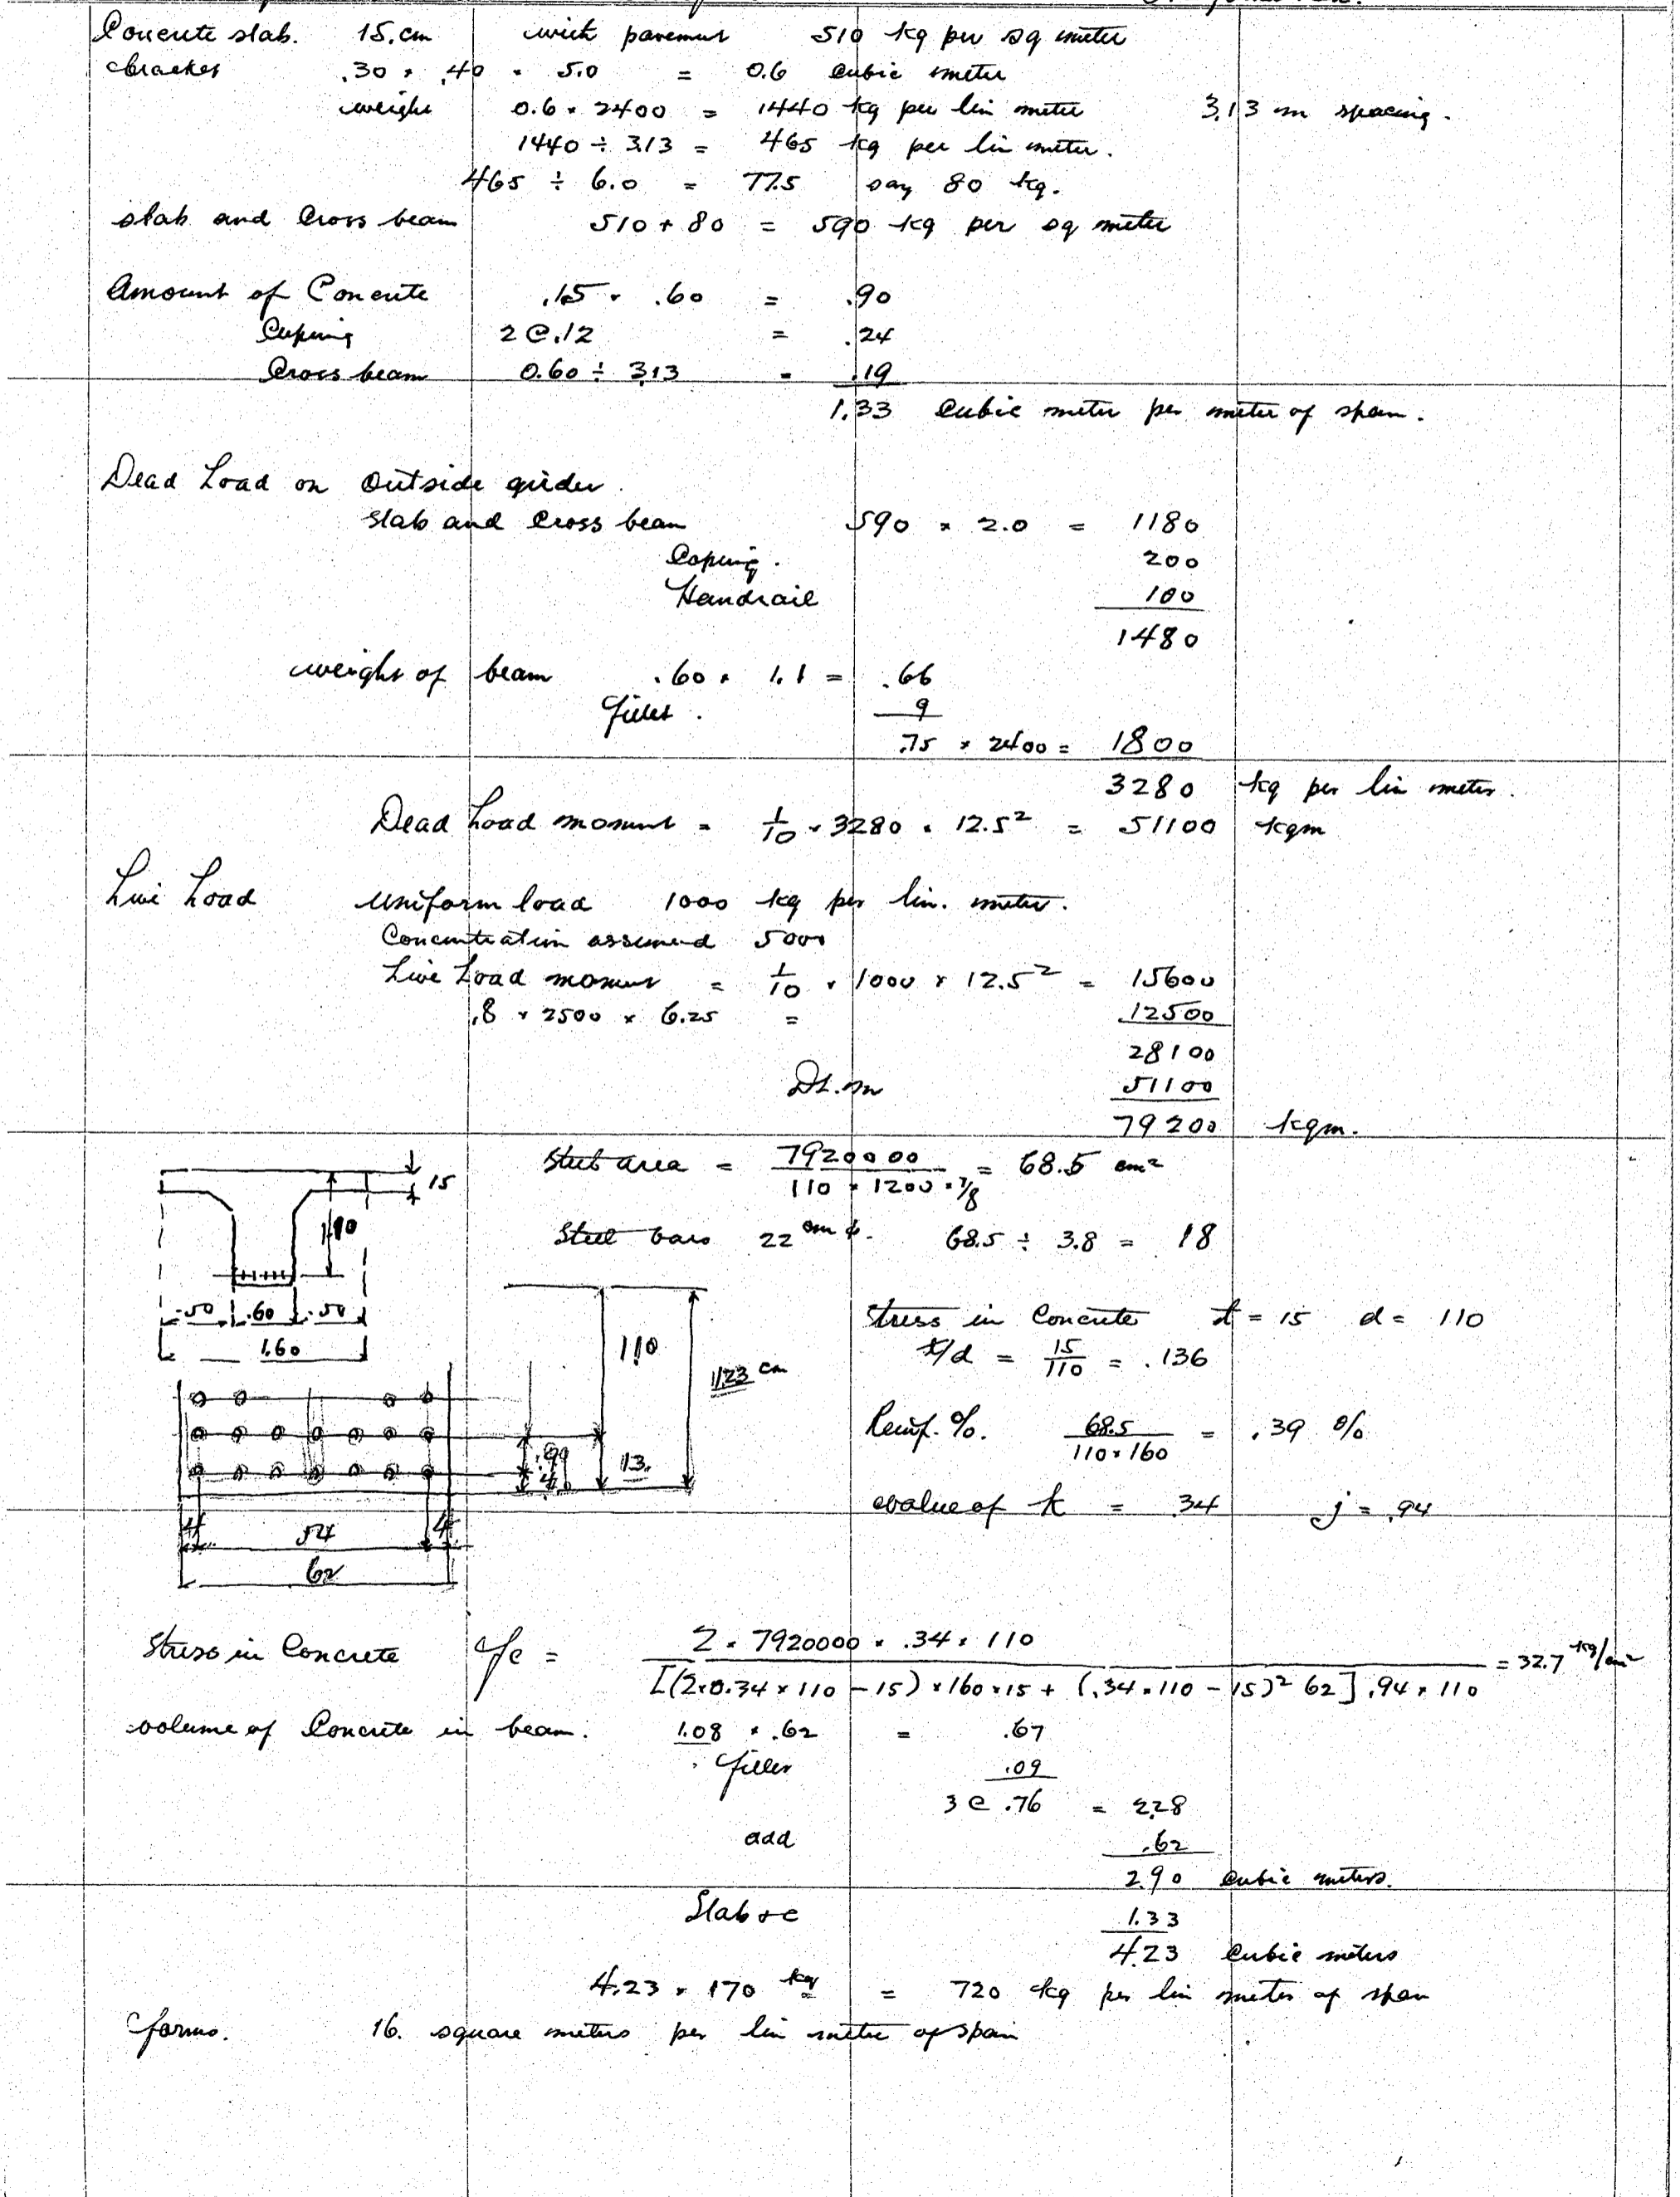 Concrete slab. 15.cm with pavement 510 kg per sq meter
bracket .30 × .40 × 5.0 = 0.6 cubic meter
weight 0.6 × 2400 = 1440 kg per lin meter 3.13 m spacing.
1440 ÷ 3.13 = 465 kg per lin meter.
465 ÷ 6.0 = 77.5 say 80 kg.
slab and Cross beam 510 + 80 = 590 kg per sq meter
Amount of Concrete .15 × .60 = .90
Coping 2 @ .12 = .24
Cross beam 0.60 ÷ 3.13 = .19
1.33 Cubic meter per meter of span.
Dead Load on Outside girder.
Slab and Cross beam 590 × 2.0 = 1180
Coping. 200
Handrail 100
1480
weight of beam .60 × 1.1 = .66
Fillet. 9
.75 × 2400 = 1800
3280 kg per lin meter.
Dead Load moment = 1/10 × 3280 × 12.5² = 51100 kgm
Live Load Uniform load 1000 kg per lin. meter.
Concentration assumed 5000
Live Load moment = 1/10 × 1000 × 12.5² = 15600
.8 × 2500 × 6.25 = 12500
28100
DL.m 51100
79200 kgm.
Steel area = 7920000 / 110 × 1200 × 7/8 = 68.5 cm²
15
110
Steel bars 22 φ. 68.5 ÷ 3.8 = 18
.50 .60 .50
1.60
Stress in Concrete t = 15 d = 110
t/d = 15/110 = .136
110
123 cm
Reinf. %. 68.5 / 110 × 160 = .39 %
13.
value of k = .34 j = .94
4 54 4
62
Stress in Concrete fc = 2 × 7920000 × .34 × 110 / [(2×0.34 × 110 - 15) × 160 × 15 + (.34 × 110 - 15)² 62] .94 × 110 = 32.7 kg/cm²
volume of Concrete in beam. 1.08 × .62 = .67
fillet .09
3 @ .76 = 2.28
add .62
2.90 Cubic meters.
Slab &c 1.33
4.23 Cubic meters
4.23 × 170 kg = 720 kg per lin meter of span
forms. 16. square meters per lin meter of span